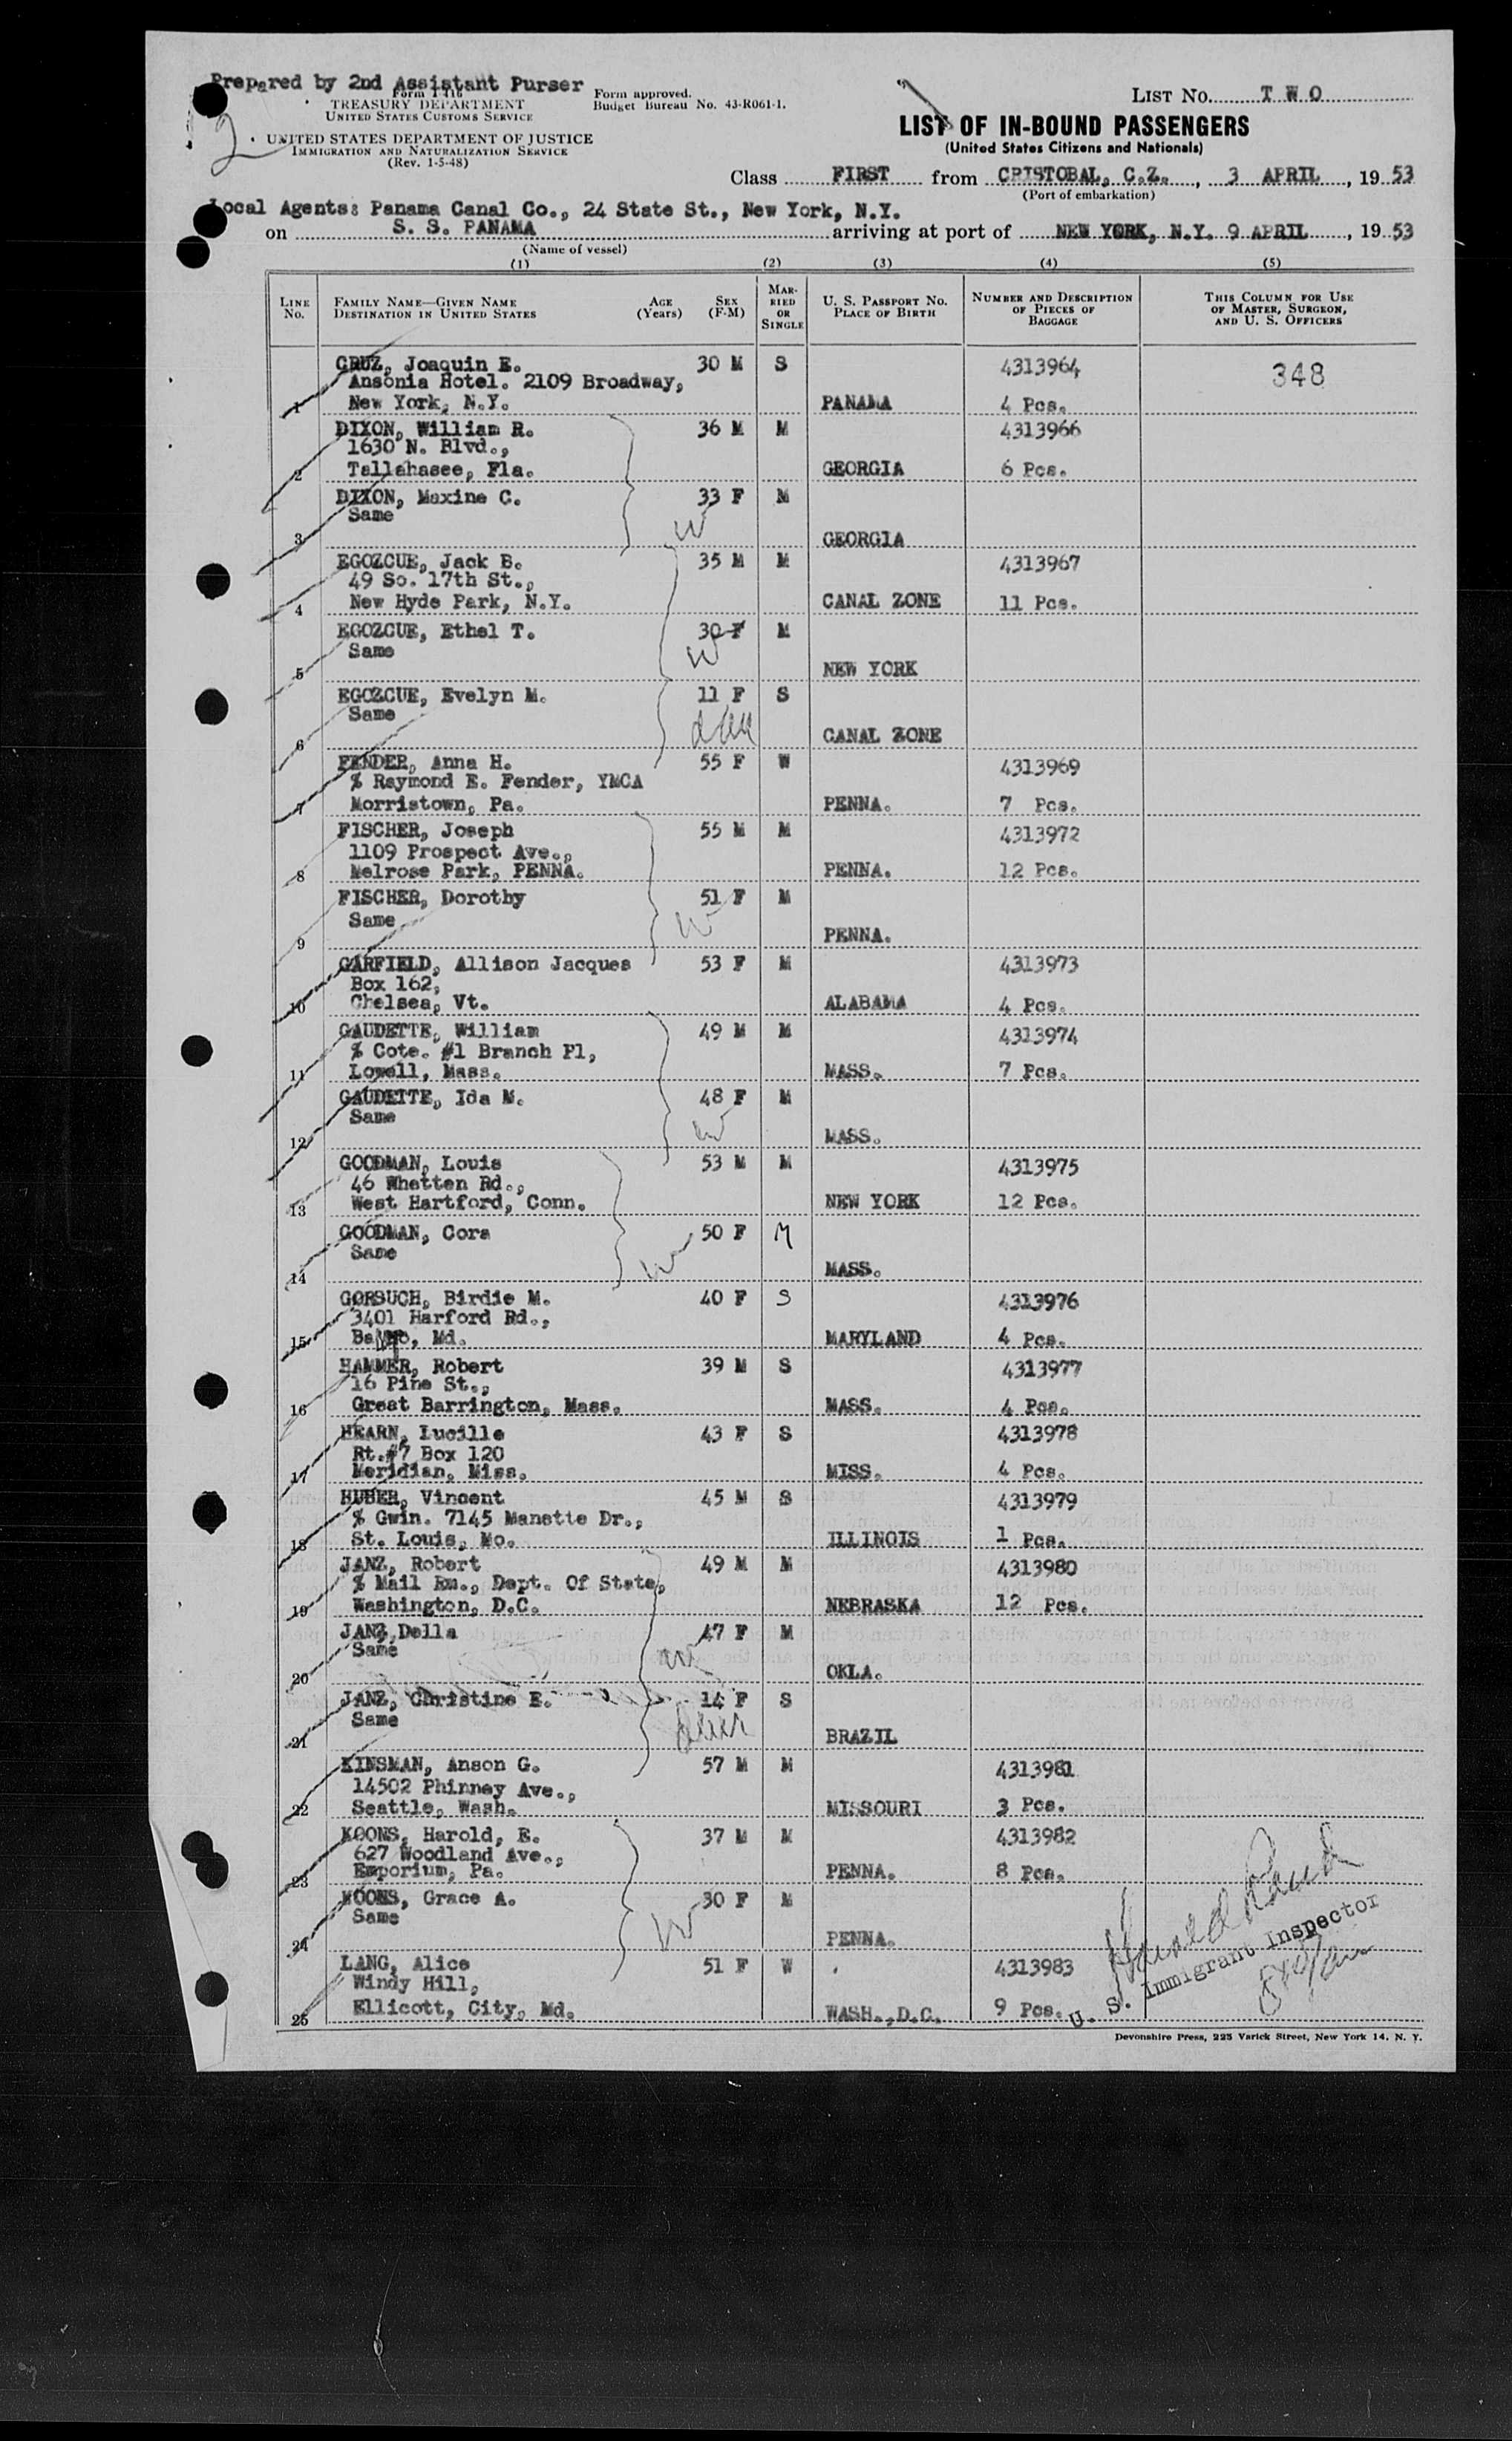 Prepared by 2nd Assistant Purser
Form I 416
TREASURY DEPARTMENT
UNITED STATES CUSTOMS SERVICE
UNITED STATES DEPARTMENT OF JUSTICE
IMMIGRATION AND NATURALIZATION SERVICE
(Rev. 1-5-48)
Form approved.
Budget Bureau No. 43-R061-1.
2
LIST No. T W O
LIST OF IN-BOUND PASSENGERS
(United States Citizens and Nationals)
Class FIRST from CRISTOBAL, C.Z., 3 APRIL, 19 53
(Port of embarkation)
Local Agents: Panama Canal Co., 24 State St., New York, N.Y.
on S. S. PANAMA arriving at port of NEW YORK, N.Y. 9 APRIL, 19 53
(Name of vessel)
(1) (2) (3) (4) (5)
LINE No. FAMILY NAME—GIVEN NAME DESTINATION IN UNITED STATES AGE (Years) SEX (F-M) MARRIED OR SINGLE U. S. PASSPORT NO. PLACE OF BIRTH NUMBER AND DESCRIPTION OF PIECES OF BAGGAGE THIS COLUMN FOR USE OF MASTER, SURGEON, AND U. S. OFFICERS
CRUZ, Joaquin E. 30 M S 4313964 348
Ansonia Hotel. 2109 Broadway,
1 New York, N.Y. PANAMA 4 Pcs.
DIXON, William R. 36 M M 4313966
1630 N. Blvd.,
2 Tallahasee, Fla. GEORGIA 6 Pcs.
DIXON, Maxine C. 33 F M
Same W
3 GEORGIA
EGOZCUE, Jack B. 35 M M 4313967
49 So. 17th St.,
4 New Hyde Park, N.Y. CANAL ZONE 11 Pcs.
EGOZCUE, Ethel T. 30 F M
Same W
5 NEW YORK
EGOZCUE, Evelyn M. 11 F S
Same
6 CANAL ZONE
FENDER, Anna H. 55 F W 4313969
% Raymond E. Fender, YMCA
7 Morristown, Pa. PENNA. 7 Pcs.
FISCHER, Joseph 55 M M 4313972
1109 Prospect Ave.,
8 Melrose Park, PENNA. PENNA. 12 Pcs.
FISCHER, Dorothy 51 F M
Same W
9 PENNA.
GARFIELD, Allison Jacques 53 F M 4313973
Box 162,
10 Chelsea, Vt. ALABAMA 4 Pcs.
GAUDETTE, William 49 M M 4313974
% Cote. #1 Branch Pl,
11 Lowell, Mass. MASS. 7 Pcs.
GAUDETTE, Ida M. 48 F M
Same W
12 MASS.
GOODMAN, Louis 53 M M 4313975
46 Whetten Rd.,
13 West Hartford, Conn. NEW YORK 12 Pcs.
GOODMAN, Cora 50 F M
Same W
14 MASS.
GORSUCH, Birdie M. 40 F S 4313976
3401 Harford Rd.,
15 Balto, Md. MARYLAND 4 Pcs.
HAMMER, Robert 39 M S 4313977
16 Pine St.,
16 Great Barrington, Mass. MASS. 4 Pcs.
HEARN, Lucille 43 F S 4313978
Rt.#7 Box 120
17 Meridian, Miss. MISS. 4 Pcs.
HUBER, Vincent 45 M S 4313979
% Gwin. 7145 Manette Dr.,
18 St. Louis, Mo. ILLINOIS 1 Pcs.
JANZ, Robert 49 M M 4313980
% Mail Rm., Dept. Of State,
19 Washington, D.C. NEBRASKA 12 Pcs.
JANZ, Della 47 F M
Same W
20 OKLA.
JANZ, Christine E. 14 F S
Same
21 BRAZIL
KINSMAN, Anson G. 57 M M 4313981
14502 Phinney Ave.,
22 Seattle, Wash. MISSOURI 3 Pcs.
KOONS, Harold, E. 37 M M 4313982
627 Woodland Ave.,
23 Emporium, Pa. PENNA. 8 Pcs.
KOONS, Grace A. 30 F M
Same W
24 PENNA.
LANG, Alice 51 F W 4313983
Windy Hill,
25 Ellicott, City, Md. WASH., D.C. 9 Pcs.
U. S. Immigrant Inspector
Devonshire Press, 225 Varick Street, New York 14, N. Y.